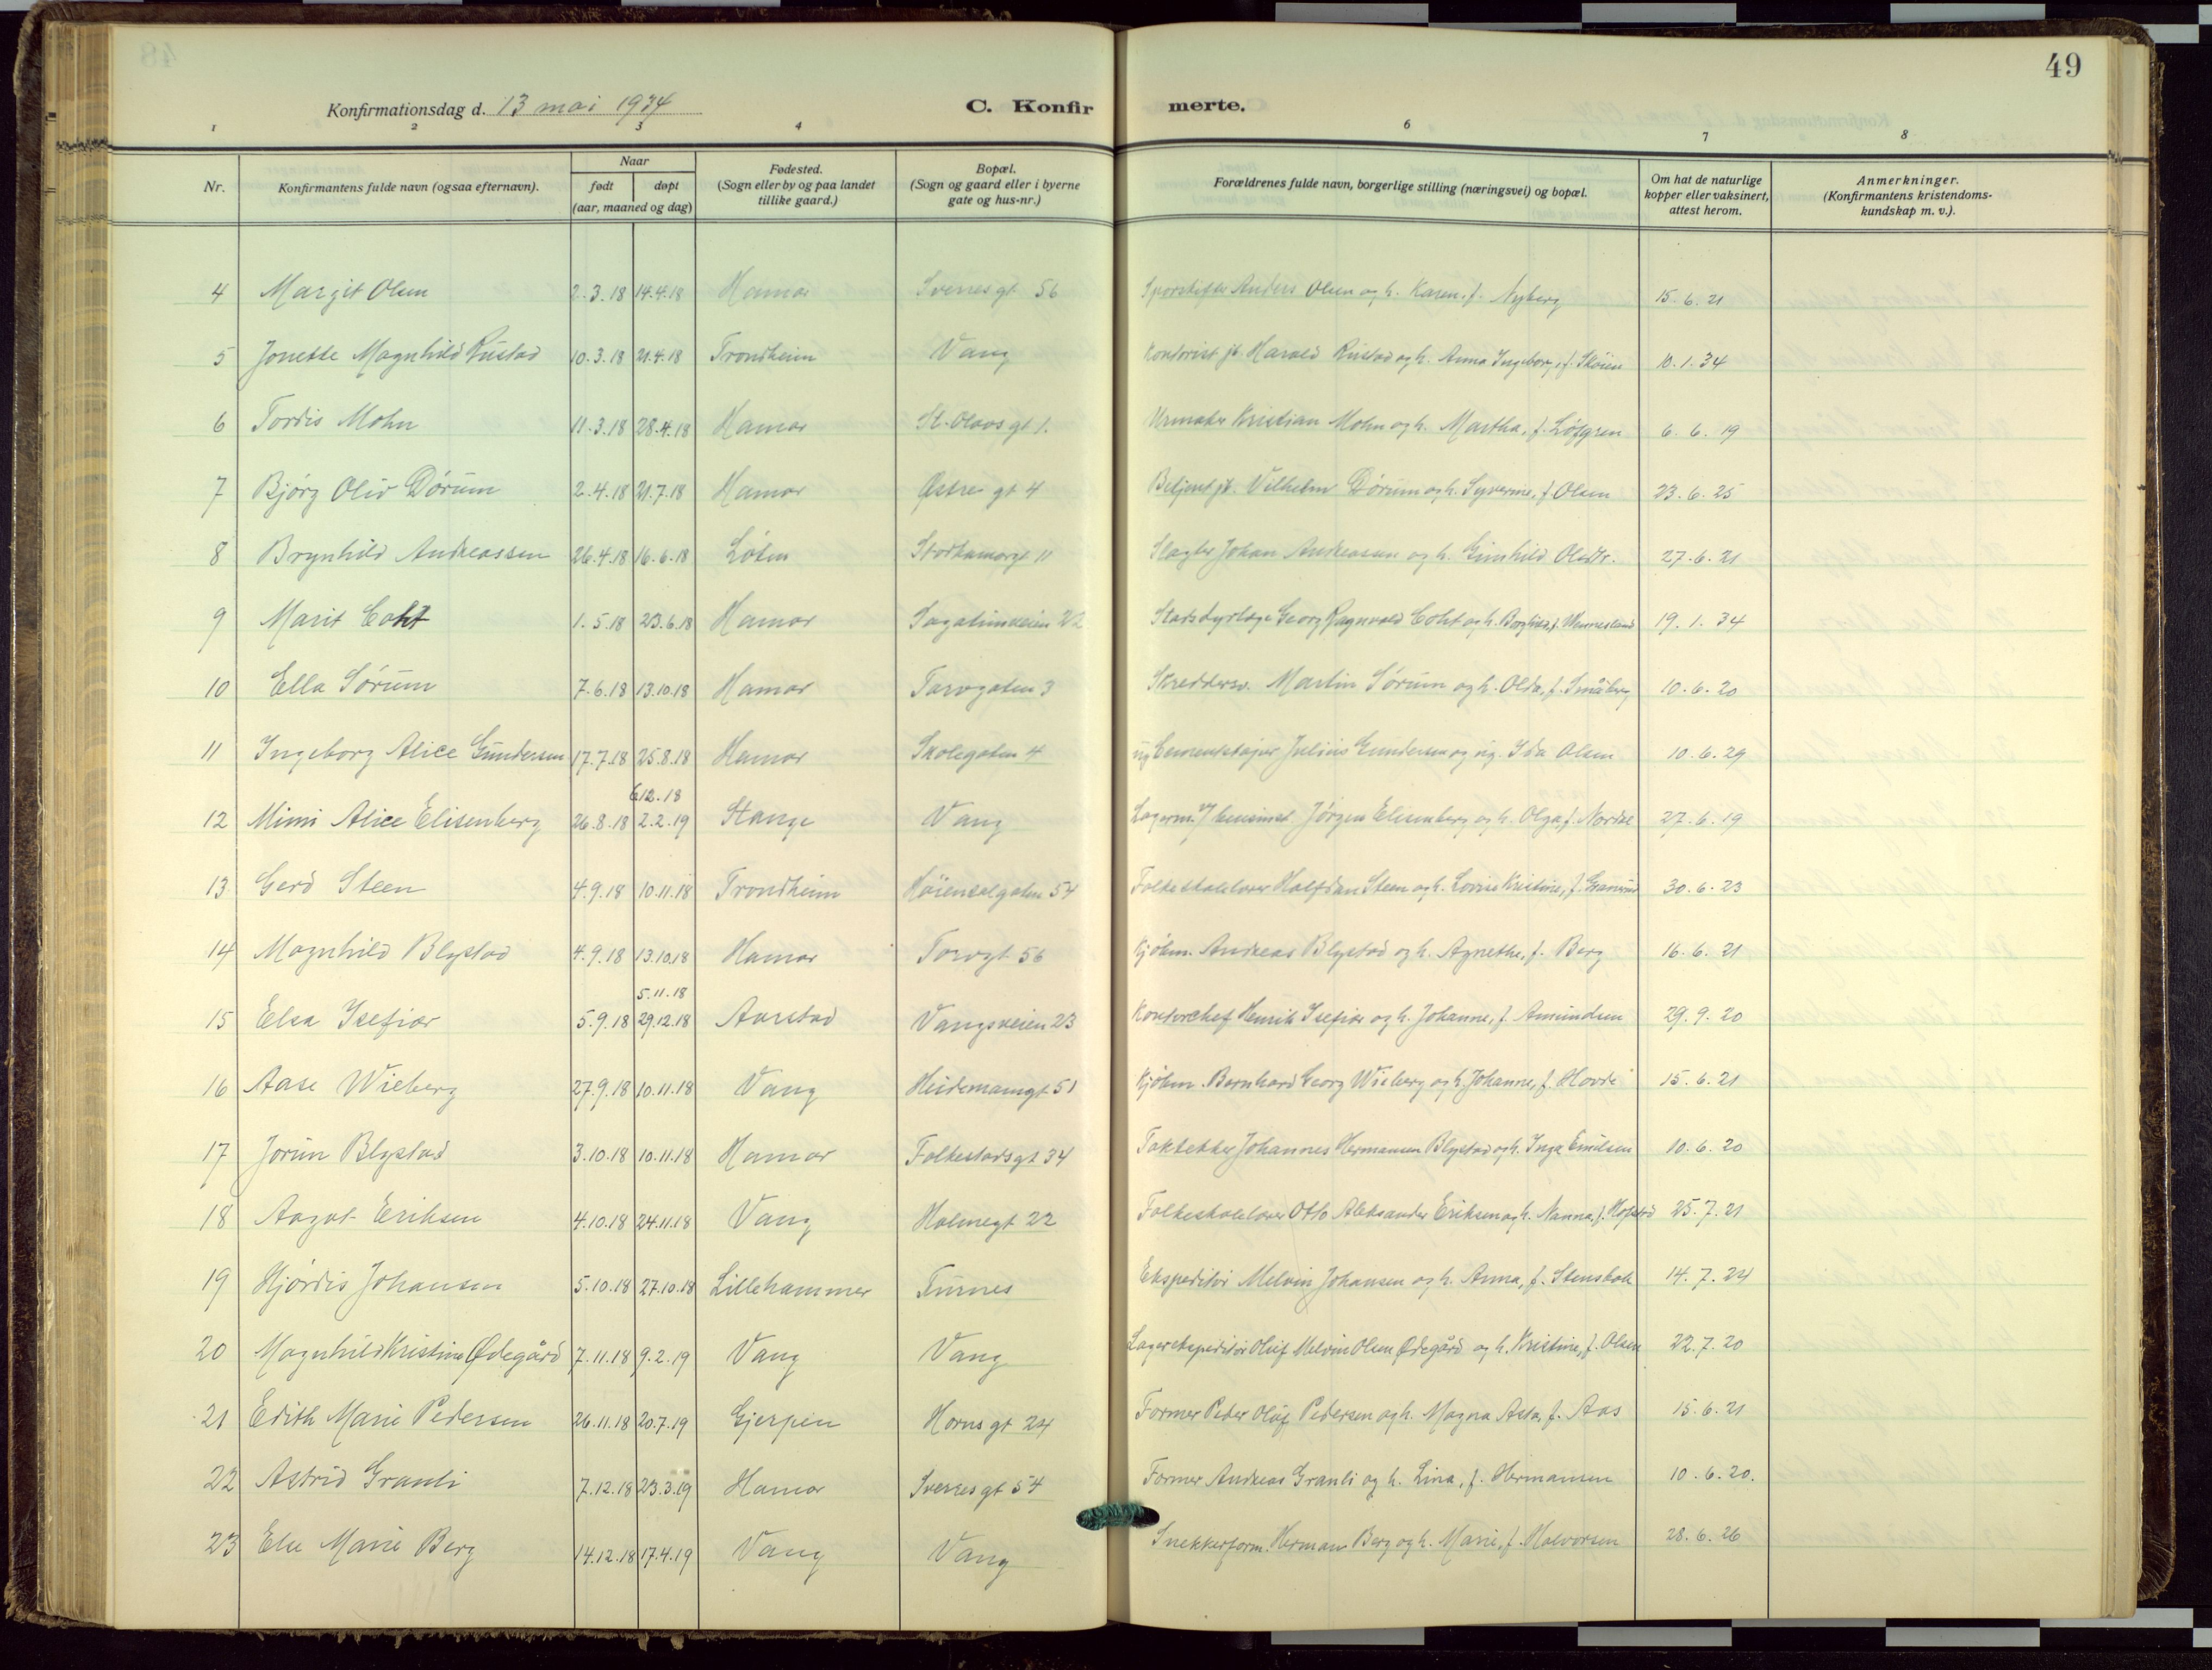 49
Konfirmationsdag d. 13 mai 1934
C. Konfirmerte.
1 2 3 4 6 7 8
Nr. Konfirmantens fulde navn (ogsaa efternavn). Naar født døpt (aar, maaned og dag) Fødested. (Sogn eller by og paa landet tillike gaard.) Bopæl. (Sogn og gaard eller i byerne gate og hus-nr.) Forældrenes fulde navn, borgerlige stilling (næringsvei) og bopæl. Om hat de naturlige kopper eller vaksinert, attest herom. Anmerkninger. (Konfirmantens kristendoms-kundskap m. v.).
4 Margit Olsen 2.3.18 14.4.18 Hamar Sverresgt 56 Sporskifter Anders Olsen og h. Karen, f. Nyberg 15.6.21
5 Jonette Magnhild Rustad 10.3.18 21.4.18 Trondheim Vang Kontorist jb. Harald Rustad og h. Anna Ingeborg, f. Skøien 10.1.34
6 Tordis Mohn 11.3.18 28.4.18 Hamar St. Olavs gt 1. Urmaker Kristian Mohn og h. Martha, f. Löfgren 6.6.19
7 Bjørg Oliv Dørum 2.4.18 21.7.18 Hamar Østre gt 4 Betjent jb. Vilhelm Dørum og h. Syverine, f. Olsen 23.6.25
8 Brynhild Andreassen 26.4.18 16.6.18 Løten Storhamargt 11 Slagter Johan Andreassen og h. Gunhild Olsdtr. 27.6.21
9 Marit Coht 1.5.18 23.6.18 Hamar Sagatunveien 22 Stadsdyrlæge Georg Ragnvald Coht og h. Borghild, f. Wennesland 19.1.34
10 Ella Sörum 7.6.18 13.10.18 Hamar Torvgaten 3 Skreddersv. Martin Sörum og h. Olda, f. Småberg 10.6.20
11 Ingeborg Alice Gundersen 17.7.18 25.8.18 Hamar Skolegaten 4 ug. Cementstøper Julius Gundersen og ug. Ida Olsen 10.6.29
6.12.18
12 Mimi Alice Elisenberg 26.8.18 2.2.19 Stange Vang Lagerm. Jørgen Elisenberg og h. Olga, f. Nordse 27.6.19
13 Gerd Steen 4.9.18 10.11.18 Trondheim Høiensalgaten 54 Folkeskolelærer Halfdan Steen og h. Lovise Kristine, f. Granrud 30.6.23
14 Magnhild Blystad 4.9.18 13.10.18 Hamar Torvgt 56 Kjøbm. Andreas Blystad og h. Agnethe, f. Berg 16.6.21
5.11.18
15 Elsa Isefiær 5.9.18 29.12.18 Aarstad Vangsveien 23 Kontorchef Henrik Isefiær og h. Johanne, f. Amundsen 29.9.20
16 Aase Wieberg 27.9.18 10.11.18 Vang Heidemannsgt 51 Kjøbm. Bernhard Georg Wieberg og h. Johanne, f. Hovde 15.6.21
17 Jorun Blystad 3.10.18 10.11.18 Hamar Folkestadsgt 34 Taktekker Johannes Hermansen Blystad og h. Inga Emilsen 10.6.20
18 Aagot Eriksen 4.10.18 24.11.18 Vang Holmegt 22 Folkeskolelærer Otto Aleksander Eriksen og h. Nanna, f. Hofstad 25.7.21
19 Hjördis Johansen 5.10.18 27.10.18 Lillehammer Furnes Ekspeditør Melvin Johansen og h. Anna, f. Stensbak 14.7.24
20 Magnhild Kristine Ødegård 7.11.18 9.2.19 Vang Vang Lagerekspeditør Oluf Melvin Olsen Ødegård og h. Kristine, f. Olsen 22.7.20
21 Edith Marie Pedersen 26.11.18 20.7.19 Gjerpen Horns gt 24 Former Peder Oluf Pedersen og h. Magna Asta, f. Aas 15.6.21
22 Astrid Granli 7.12.18 23.3.19 Hamar Sverresgt 54 Former Andreas Granli og h. Lina, f. Hermansen 10.6.20.
23 Else Marie Berg 14.12.18 17.4.19 Vang Vang Snekkerform. Herman Berg og h. Marie, f. Halvorsen 28.6.26